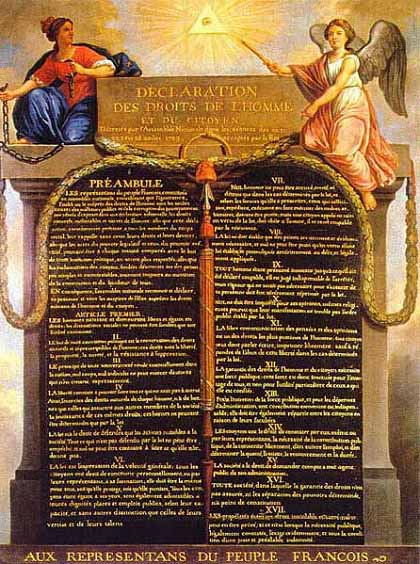 DÉCLARATION
DES DROITS DE L'HOMME
ET DU CITOYEN
Décrétés par l'Assemblée Nationale dans les séances des
PRÉAMBULE
LES représentans du peuple François, constitués
en assemblée nationale, considérant que l'ignorance,
l'oubli ou le mépris des droits de l'homme sont les seules
causes des malheurs publics et de la corruption des gouvernemens
ont résolu d'exposer dans une déclaration solemnelle, les droits
naturels, inaliénables et sacrés de l'homme; afin que cette déclaration,
constamment présente à tous les membres du corps
social, leur rappelle sans cesse leurs droits et leurs devoirs;
afin que les actes du pouvoir législatif et ceux du pouvoir exécutif,
pouvant être à chaque instant comparés avec le but
de toute institution politique, en soient plus respectés; afin que
les réclamations des citoyens, fondées désormais sur des principes
simples et incontestables, tournent toujours au maintien
de la constitution et du bonheur de tous.
EN conséquence, l'assemblée nationale reconnoît et déclare,
en présence et sous les auspices de l'Être suprême les droits
suivans de l'homme et du citoyen.
ARTICLE PREMIER.
LES hommes naissent et demeurent libres et égaux en
droits; les distinctions sociales ne peuvent être fondées que sur
l'utilité commune.
II.
LE but de toute association politique est la conservation des droits
naturels et imprescriptibles de l'homme; ces droits sont la liberté,
la propriété, la sureté, et la résistance à l'oppression.
III.
LE principe de toute souveraineté réside essentiellement dans
la nation, nul corps, nul individu ne peut exercer d'autorité
qui n'en émane expressément.
IV.
LA liberté consiste à pouvoir faire tout ce qui ne nuit pas à autrui
Ainsi, l'exercice des droits naturels de chaque homme, n'a de bornes
que celles qui assurent aux autres membres de la société
la jouissance de ces mêmes droits; ces bornes ne peuvent
être déterminées que par la loi.
V.
LA loi n'a le droit de défendre que les actions nuisibles à la
société. Tout ce qui n'est pas défendu par la loi ne peut être
empêché, et nul ne peut être contraint à faire ce qu'elle n'ordonne
pas.
VI.
LA loi est l'expression de la volonté générale; tous les
citoyens ont droit de concourir personnellement, ou par
leurs représentans, à sa formation; elle doit être la même
pour tous, soit qu'elle protége, soit qu'elle punisse. Tous les citoyens
étant égaux à ses yeux, sont également admissibles à
toutes dignités, places et emplois publics, selon leur capacité,
et sans autres distinctions que celles de leurs
vertus et de leurs talens.
VII.
NUL homme ne peut être accusé, arrêté, ni
détenu que dans les cas déterminés par la loi, et
selon les formes qu'elle a prescrites, ceux qui sollicitent,
expédient, exécutent ou font exécuter des ordres arbitraires,
doivent être punis; mais tout citoyen appelé ou saisi
en vertu de la loi, doit obéir à l'instant, il se rend coupable
par la résistance.
VIII.
LA loi ne doit établir que des peines strictement et évidemment
nécessaires, et nul ne peut être puni qu'en vertu d'une
loi établie et promulguée antérieurement au délit, et légalement
appliquée.
IX.
TOUT homme étant présumé innocent jusqu'à ce qu'il ait
été déclaré coupable, s'il est jugé indispensable de l'arrêter,
toute rigueur qui ne serait pas nécessaire pour s'assurer de
sa personne doit être sévèrement réprimée par la loi.
X.
NUL ne doit être inquiété pour ses opinions, mêmes religieuses
pourvu que leur manifestation ne trouble pas l'ordre
public établi par la loi.
XI.
LA libre communication des pensées et des opinions
est un des droits les plus précieux de l'homme: tout citoyen
peut donc parler, écrire, imprimer librement: sauf à répondre
de l'abus de cette liberté dans les cas déterminés
par la loi.
XII.
LA garantie des droits de l'homme et du citoyen nécessite
une force publique; cette force est donc instituée pour l'avantage
de tous, et non pour l'utilité particulière de ceux à qui
elle est confiée.
XIII.
POUR l'entretien de la force publique, et pour les dépenses
d'administration, une contribution commune est indispensable;
elle doit être également répartie entre les citoyens en
raison de leurs facultés.
XIV.
LES citoyens ont le droit de constater par eux même ou
par leurs représentans, la nécessité de la contribution publique,
de la consentir librement, d'en suivre l'emploi, et d'en
déterminer la quotité, l'assiette, le recouvrement et la durée.
XV.
LA société a le droit de demander compte à tout agent
public de son administration.
XVI.
TOUTE société, dans laquelle la garantie des droits n'est
pas assurée, ni la séparation des pouvoirs déterminée,
n'a point de constitution.
XVII.
LES propriétés étant un droit inviolable et sacré, nul ne
peut en être privé, si ce n'est lorsque la nécessité publique,
légalement constatée, l'exige évidemment, et sous la condition
d'une juste et préalable indemnité.
AUX REPRESENTANS DU PEUPLE FRANCOIS